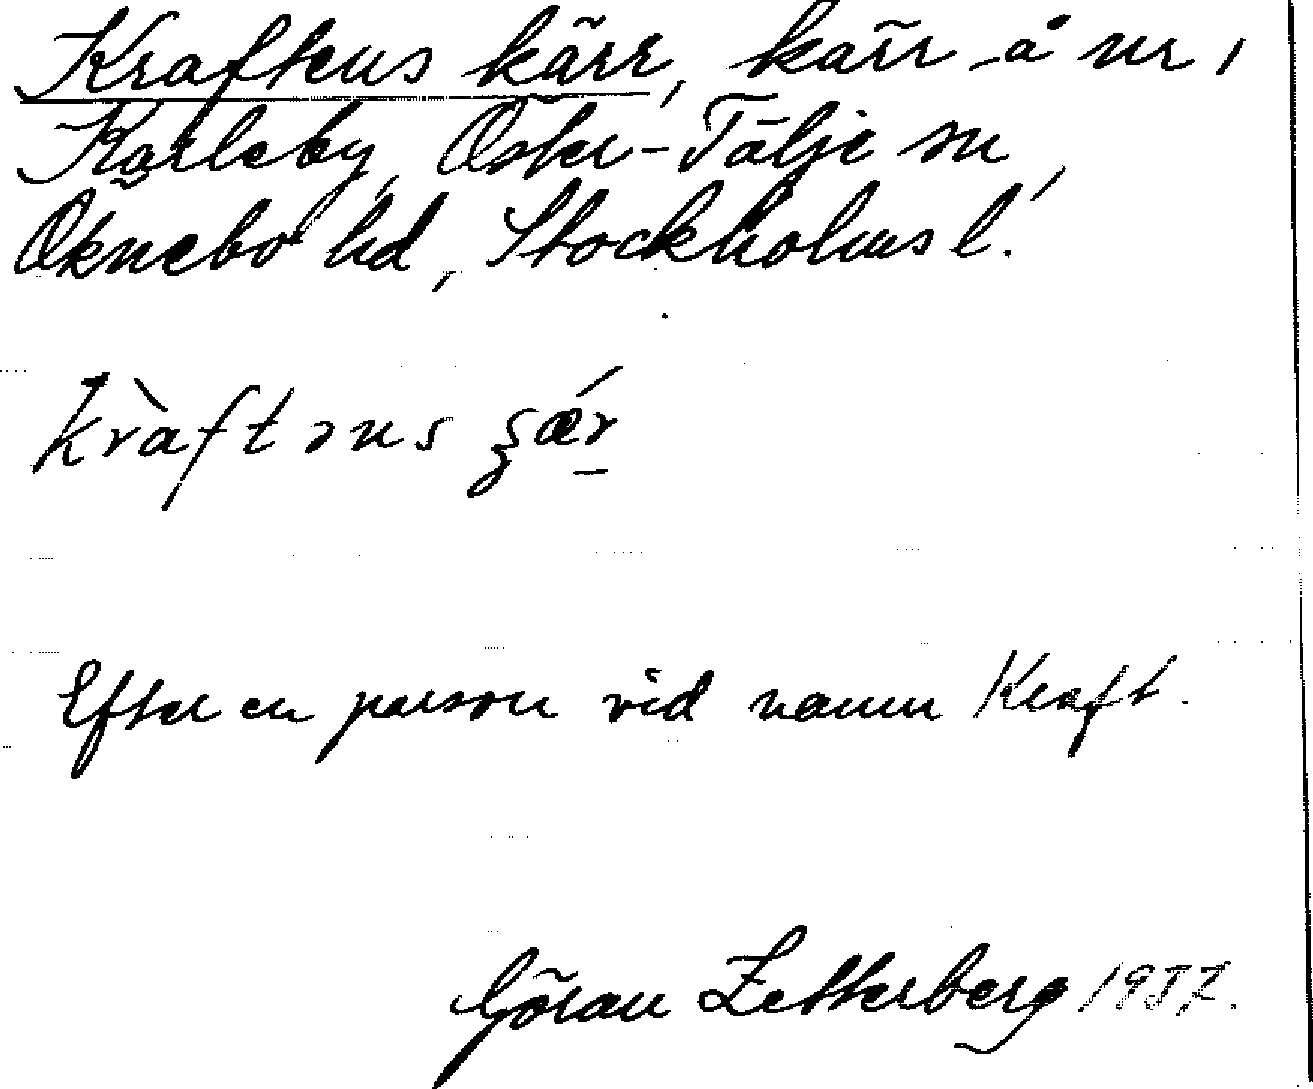 Kraftens kärr, kärr å nr 1
Karleby, Öster-Tälje sn,
Öknebo hd, Stockholms l.
kràftəns ʂǽr
Efter en person vid namn Kraft.
Göran Zetterberg 1937.